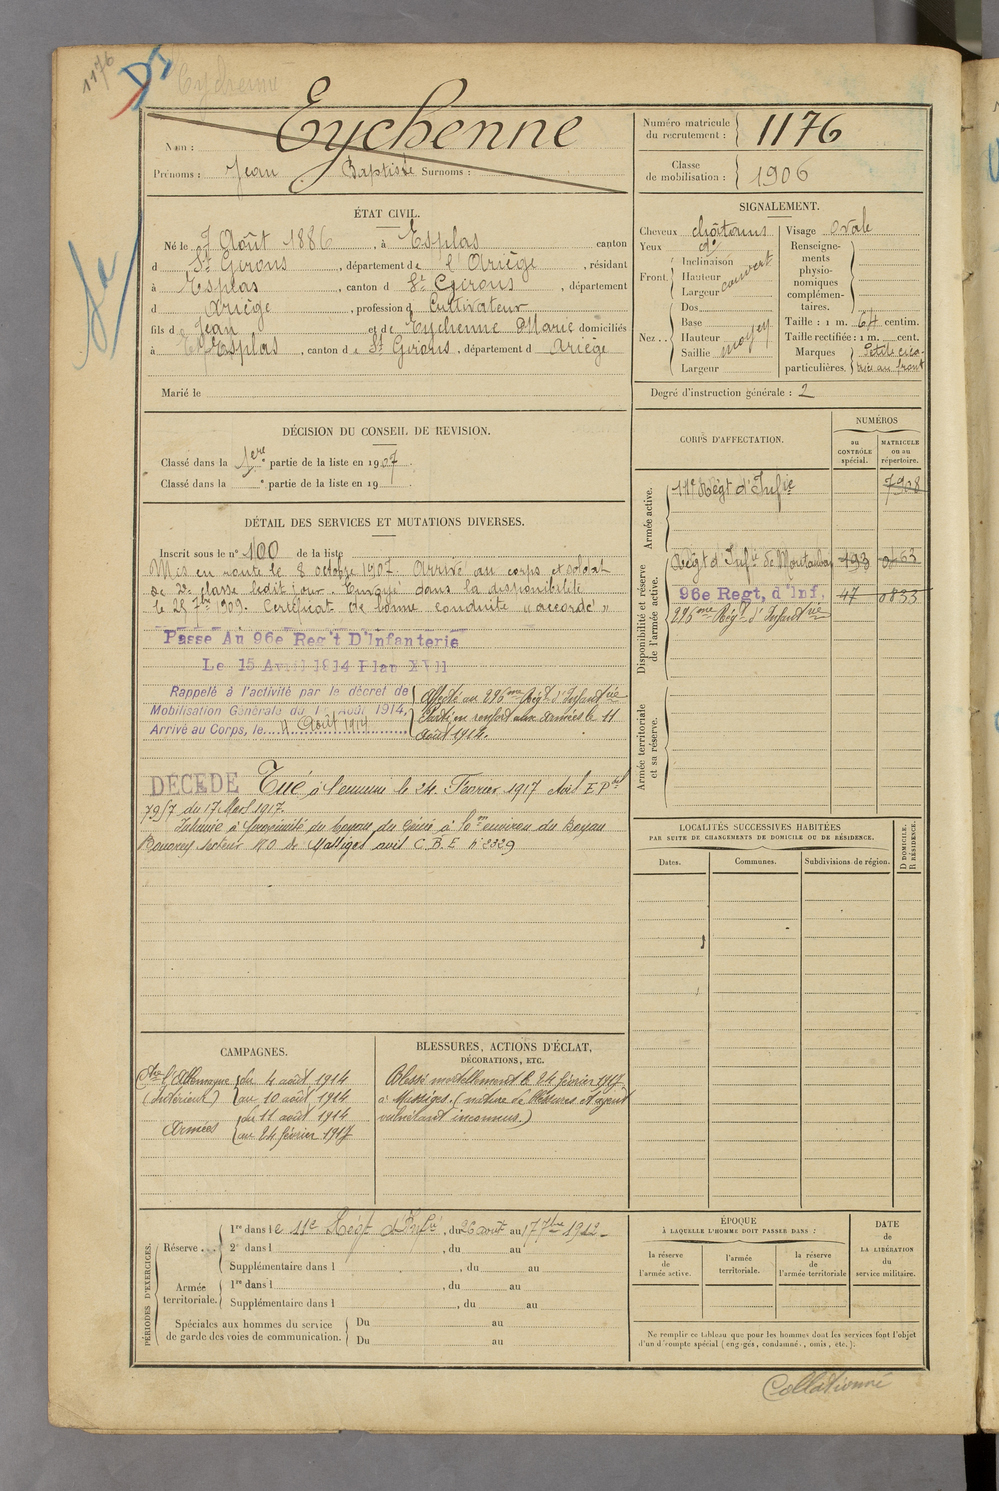 1176
Eychenne
Nom : Eychenne
Prénoms : Jean Baptiste Surnoms :
Numéro matricule
du recrutement : 1176
Classe
de mobilisation : 1906
ÉTAT CIVIL.
Né le 7 Août 1886, à Esplas canton
d St Girons, département de l'Ariège, résidant
à Esplas, canton d St Girons, département
d Ariège, profession de Cultivateur
fils de Jean et de Eychenne Marie domiciliés
à Esplas, canton de St Girons, département d Ariège
Marié le
SIGNALEMENT.
Cheveux châtains
Yeux do
Front. Inclinaison
Hauteur couvert
Largeur
Nez.. Dos
Base
Hauteur moyen
Saillie
Largeur
Visage Ovale
Renseigne-
ments
physio-
nomiques
complémen-
taires.
Taille : 1 m. 64 centim.
Taille rectifiée : 1 m. cent.
Marques Petite cica-
particulières. trice au front
Degré d'instruction générale : 2
DÉCISION DU CONSEIL DE REVISION.
Classé dans la 1ère partie de la liste en 1907
Classé dans la e partie de la liste en 19
DÉTAIL DES SERVICES ET MUTATIONS DIVERSES.
Inscrit sous le n° 100 de la liste
Mis en route le 8 octobre 1907. Arrivé au corps et soldat
de 2e classe ledit jour. Envoyé dans la disponibilité
le 28 7bre 1909. Certificat de bonne conduite "accordé"
Passé Au 96e Reg't D'Infanterie
Le 15 Avril 1914 Plan XVII
Rappelé à l'activité par le décret de
Mobilisation Générale du 1er Août 1914,
Arrivé au Corps, le 4 Août 1914
Affecté au 296me Régt d'Infanterie
Parti en renfort aux armées le 11
Août 1914.
DÉCÉDÉ Tué à l'ennemi le 24 Février 1917 Avis E Ptel
du 17 Mars 1917.
Inhumé à proximité du boyau du à 10m environ du Boyau
Secteur N.O de Massiges avis C.B.E N° 2329
CORPS D'AFFECTATION.
NUMÉROS
au
CONTRÔLE
spécial.
MATRICULE
ou au
répertoire.
Armée active.
11e Régt d'Infie 7908
Disponibilité et réserve
de l'armée active.
Régt d'Infie de Montauban 193 0163
96e Regt, d'Inf. 47 0833
296me Régt d'Infantrie
Armée territoriale
et sa réserve.
LOCALITÉS SUCCESSIVES HABITÉES
PAR SUITE DE CHANGEMENTS DE DOMICILE OU DE RÉSIDENCE.
Dates.
Communes.
Subdivisions de région.
D DOMICILE.
R RÉSIDENCE.
CAMPAGNES.
Ctre l'Allemagne du 4 août 1914
(Intérieur) au 10 août 1914
Armées du 11 août 1914
au 24 février 1917
BLESSURES, ACTIONS D'ÉCLAT,
DÉCORATIONS, ETC.
Blessé mortellement le 24 février 1917
à Massiges. (nature de blessures et agent
vulnérant inconnus.)
PÉRIODES D'EXERCICES.
Réserve... 1re dans le 11e Régt d'Infie, du 26 août au 17 7bre 1912
2e dans l, du au
Supplémentaire dans l, du au
Armée
territoriale. 1re dans l, du au
Supplémentaire dans l, du au
Spéciales aux hommes du service
de garde des voies de communication.
Du au
Du au
ÉPOQUE
À LAQUELLE L'HOMME DOIT PASSER DANS :
la réserve
de
l'armée active.
l'armée
territoriale.
la réserve
de
l'armée territoriale
DATE
de
LA LIBÉRATION
du
service militaire.
Ne remplir ce tableau que pour les hommes dont les services font l'objet
d'un décompte spécial (engagés, condamnés, omis, etc.).
Collationné